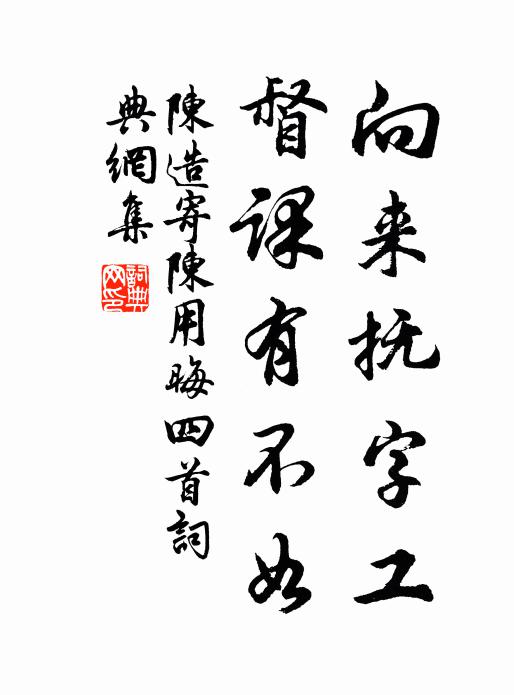 向来抚字工
督课有不如
陳造寄陳用晦四首詞
典網集
詞典网印